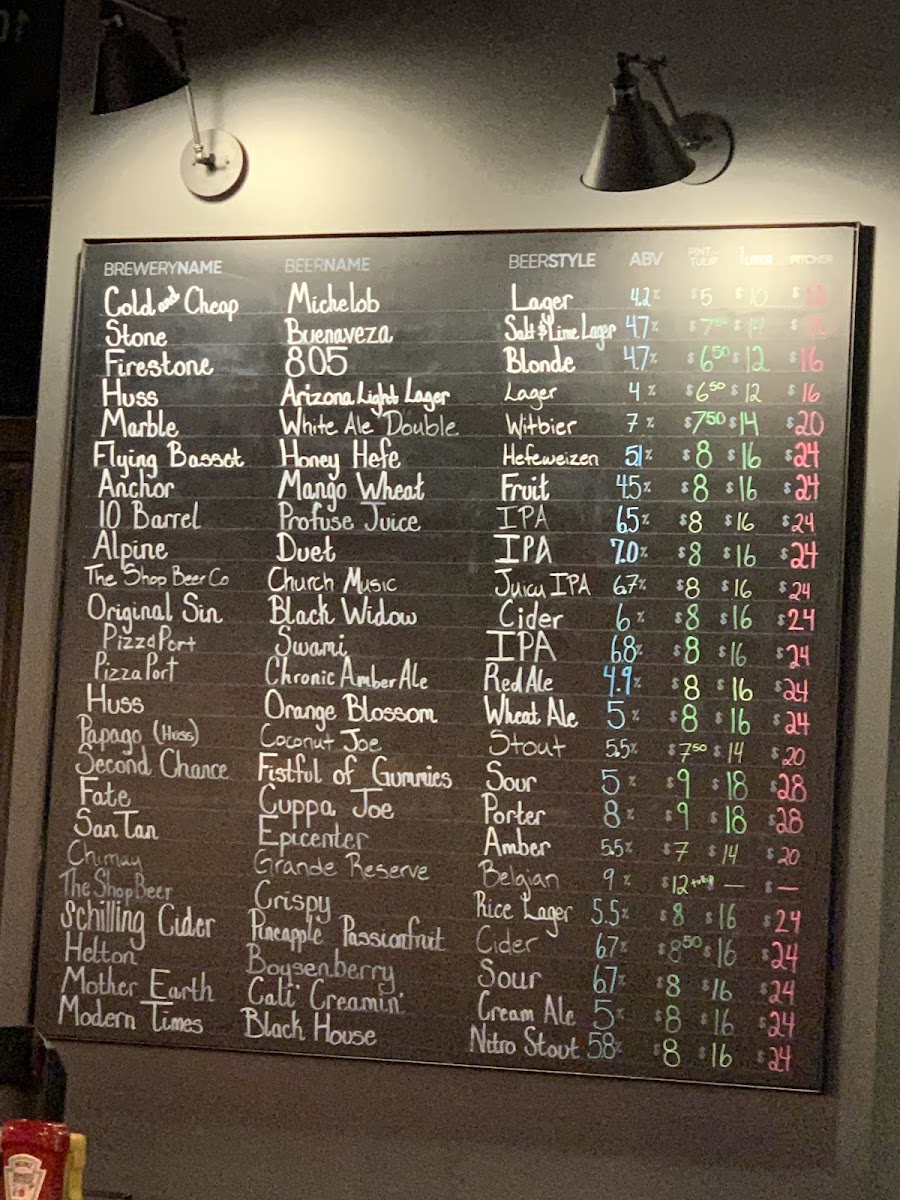 BREWERYNAME BEERNAME BEERSTYLE ABV PINT TULIP 1LITER PITCHER
Cold and Cheap Michelob Lager 4.2% $5 $10 $
Stone Buenaveza Salt & Lime Lager 4.7% $7 50 $14 $
Firestone 805 Blonde 4.7% $6 50 $12 $16
Huss Arizona Light Lager Lager 4% $6 50 $12 $16
Marble White Ale Double Witbier 7% $7 50 $14 $20
Flying Basset Honey Hefe Hefeweizen 5.1% $8 $16 $24
Anchor Mango Wheat Fruit 4.5% $8 $16 $24
10 Barrel Profuse Juice IPA 6.5% $8 $16 $24
Alpine Duet IPA 7.0% $8 $16 $24
The Shop Beer Co Church Music Juicy IPA 6.7% $8 $16 $24
Original Sin Black Widow Cider 6% $8 $16 $24
Pizza Port Swami IPA 6.8% $8 $16 $24
Pizza Port Chronic Amber Ale Red Ale 4.9% $8 $16 $24
Huss Orange Blossom Wheat Ale 5% $8 $16 $24
Papago (Huss) Coconut Joe Stout 5.5% $7 50 $14 $20
Second Chance Fistful of Gummies Sour 5% $9 $18 $28
Fate Cuppa Joe Porter 8% $9 $18 $28
San Tan Epicenter Amber 5.5% $7 $14 $20
Chimay Grande Reserve Belgian 9% $12 tulip — $ —
The Shop Beer Crispy Rice Lager 5.5% $8 $16 $24
Schilling Cider Pineapple Passionfruit Cider 6.7% $8 50 $16 $24
Helton Boysenberry Sour 6.7% $8 $16 $24
Mother Earth Cali Creamin' Cream Ale 5% $8 $16 $24
Modern Times Black House Nitro Stout 5.8% $8 $16 $24
HEINZ